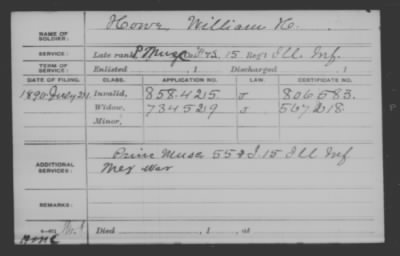 NAME OF SOLDIER: Howe, William H.
SERVICE: Late rank P. Musc F&S. 15 Reg't Ill. Inf.
TERM OF SERVICE: Enlisted , 1 Discharged , 1
DATE OF FILING. CLASS. APPLICATION NO. LAW. CERTIFICATE NO.
1890 July 24 Invalid, 858.425 J 806.583.
Widow, 734529 J 567218.
Minor,
ADDITIONAL SERVICES: Prin. Musc 55 & I. 15 Ill Inf
Mex War
REMARKS:
Died , 1 , at